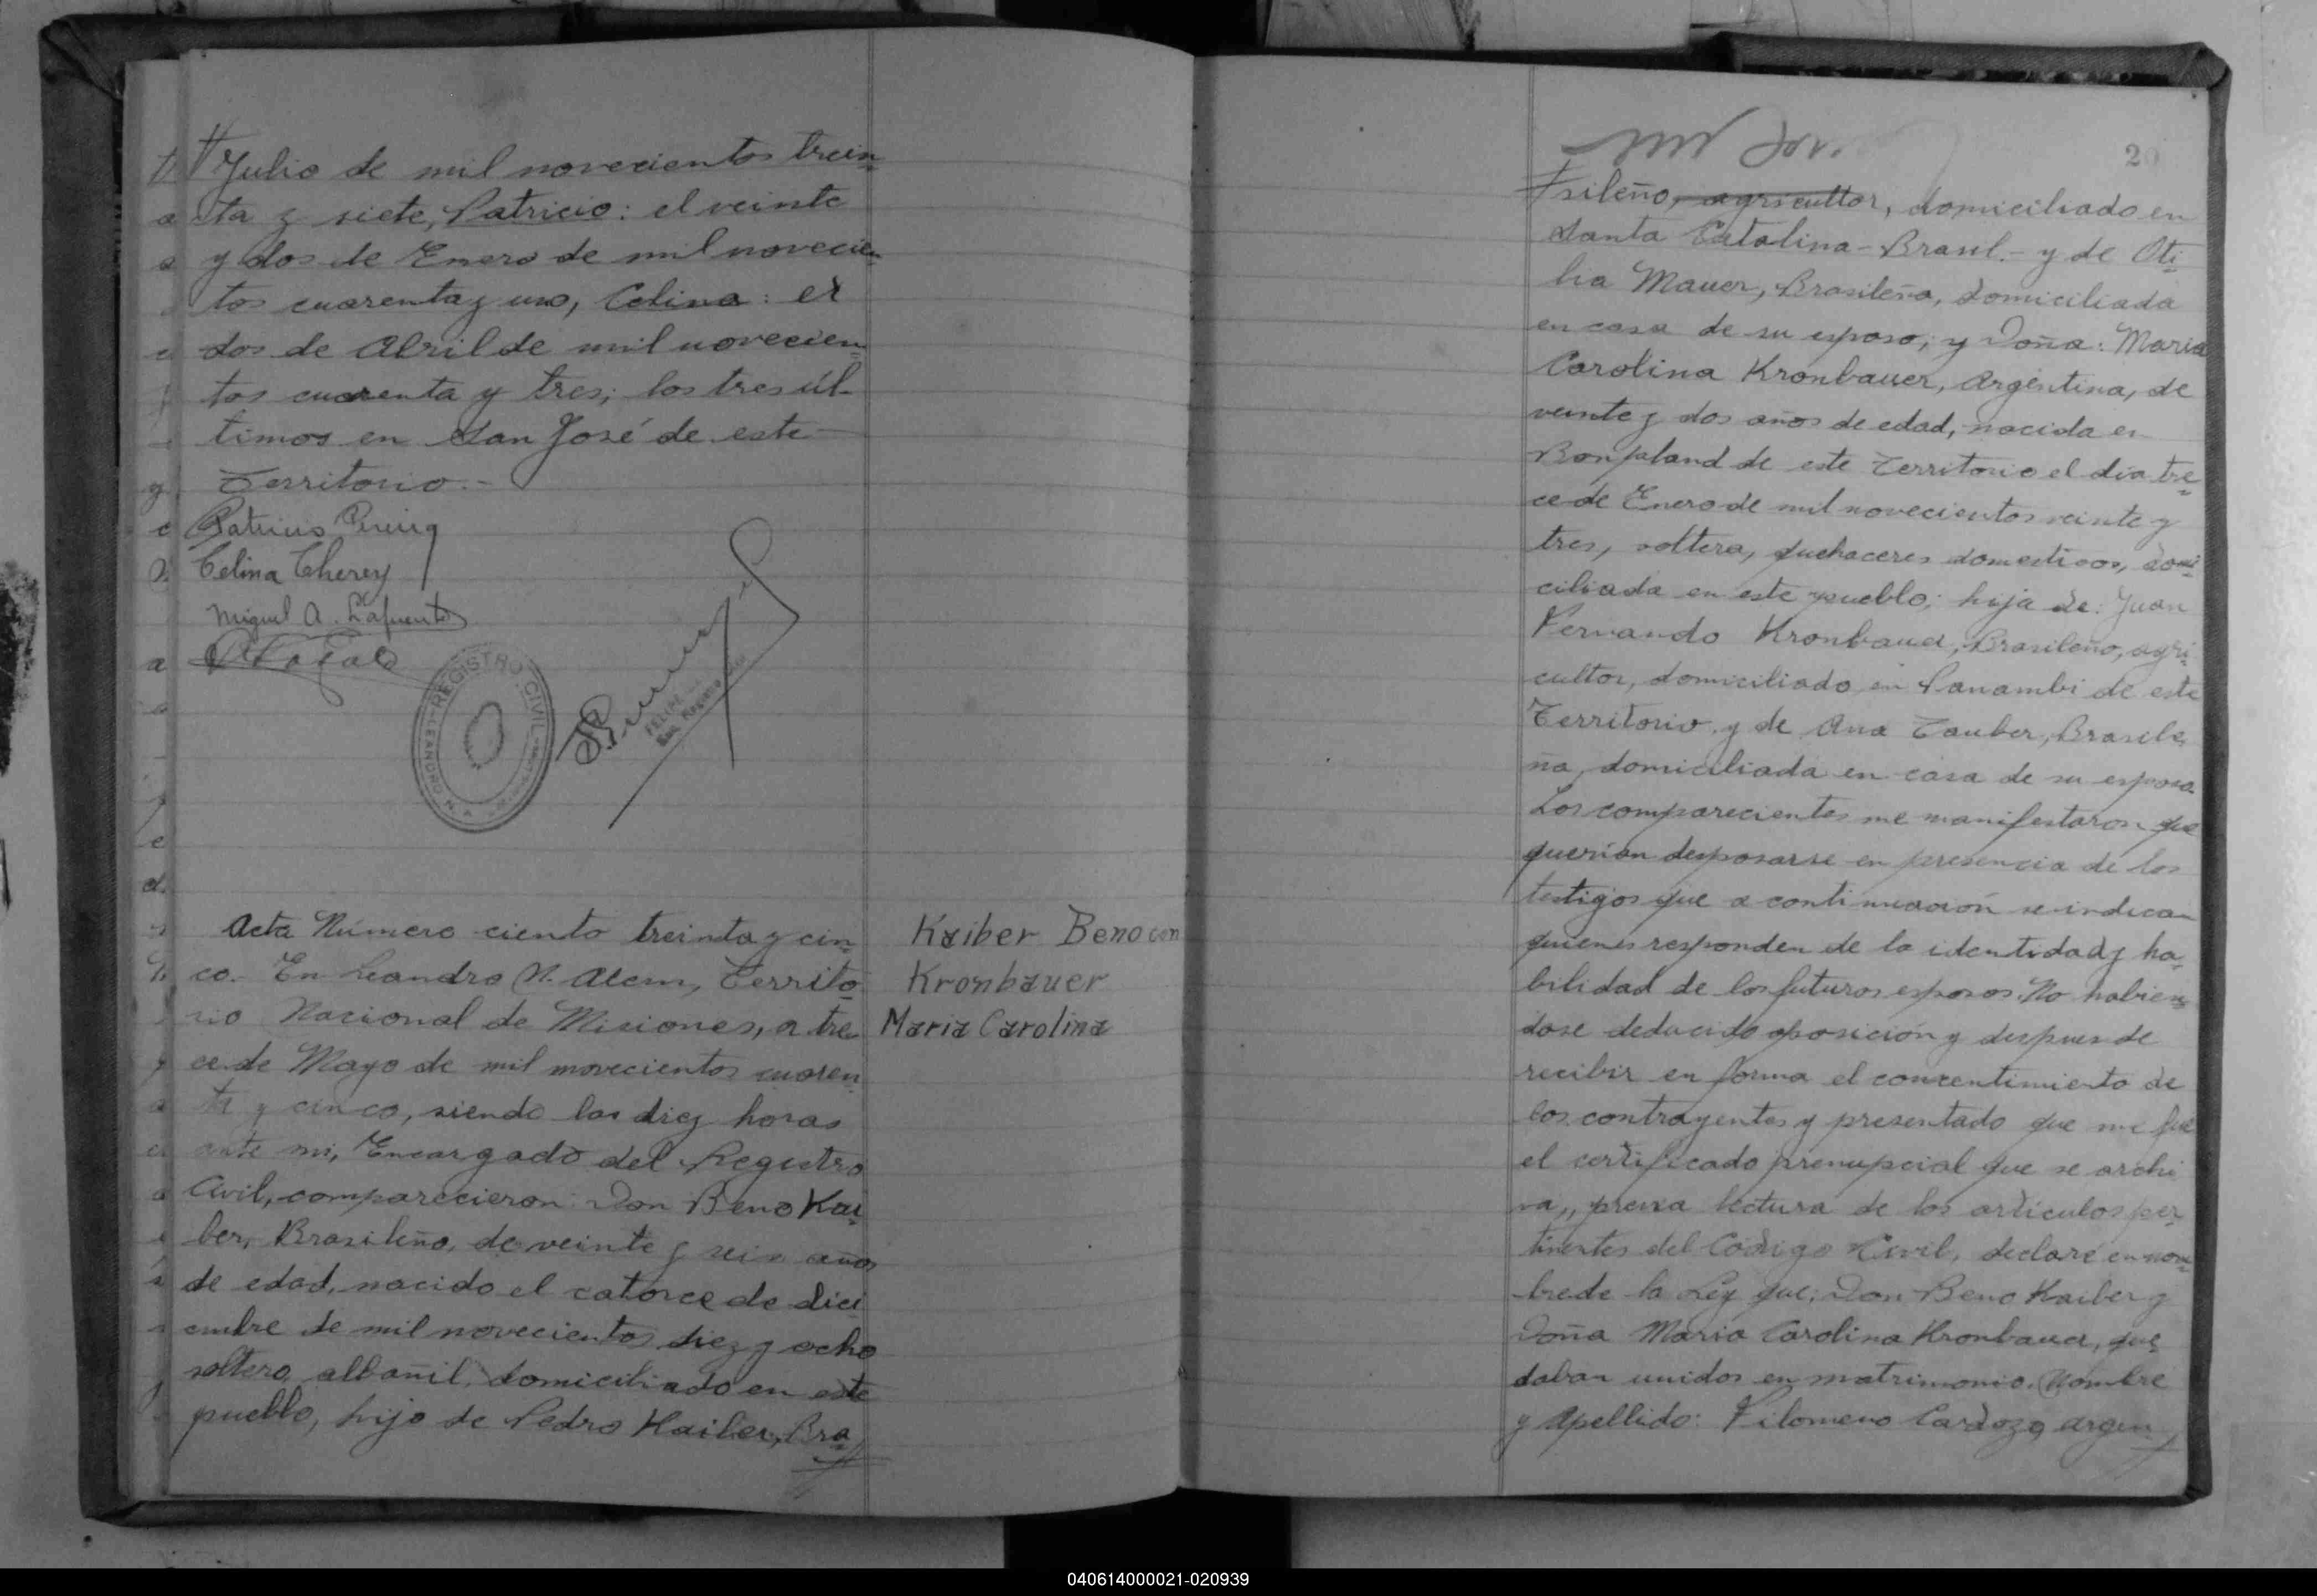 Julio de mil novecientos trein-
ta y siete, Patricio: el veinte
y dos de Enero de mil novecien-
tos cuarenta y uno, Celina: el
dos de Abril de mil novecien-
tos cuarenta y tres; los tres úl-
timos en San José de este
Territorio.-
Celina Cherey
Miguel A. Lafuente
REGISTRO CIVIL
LEANDRO N.
FELIPE
Acta Número ciento treinta y cin-
co.- En Leandro N. Alem, Territo-
rio Nacional de Misiones, a tre-
ce de Mayo de mil movecientos cuaren
ta y cinco, siendo las diez horas
ante mi, Encargado del Registro
Civil, comparecieron: Don Beno Kai-
ber, Brasileño, de veinte y seis años
de edad, nacido el catorce de dici
embre de mil novecientos diez y ocho
soltero, albañil, domiciliado en este
pueblo, hijo de Pedro Kaiber, Bra-
Kaiber Beno con
Kronbauer
Maria Carolina
20
sileño, agricultor, domiciliado en
Santa Catalina - Brasil.- y de Oti-
lia Mauer, Brasileña, domiciliada
en casa de su esposo; y Doña: Maria
Carolina Kronbauer, Argentina, de
veinte y dos años de edad, nacida en
Bonpland de este Territorio el día tre-
ce de Enero de mil novecientos veinte y
tres, soltera, quehaceres domesticos, domi-
ciliada en este pueblo; hija de: Juan
Fernando Kronbauer, Brasileño, agri-
cultor, domiciliado en Panambi de este
Territorio y de Ana Tauber, Brasile-
ña, domiciliada en casa de su esposo.
Los comparecientes me manifestaron que
querian desposarse en presencia de los
testigos que a continuación se indican
quienes responden de la identidad y ha-
bilidad de los futuros esposos. No habien-
dose deducido oposición y despues de
recibir en forma el concentimiento de
los contrayentes y presentado que me fué
el certificado prenupcial que se archi
va, previa lectura de los artículos per-
tinentes del Código Civil, declaré en nom-
bre de la Ley que: Don Beno Kaiber y
Doña Maria Carolina Kronbauer, que-
daban unidos en matrimonio. Nombre
y Apellido: Filomeno Cardozo, argen-
040614000021-020939